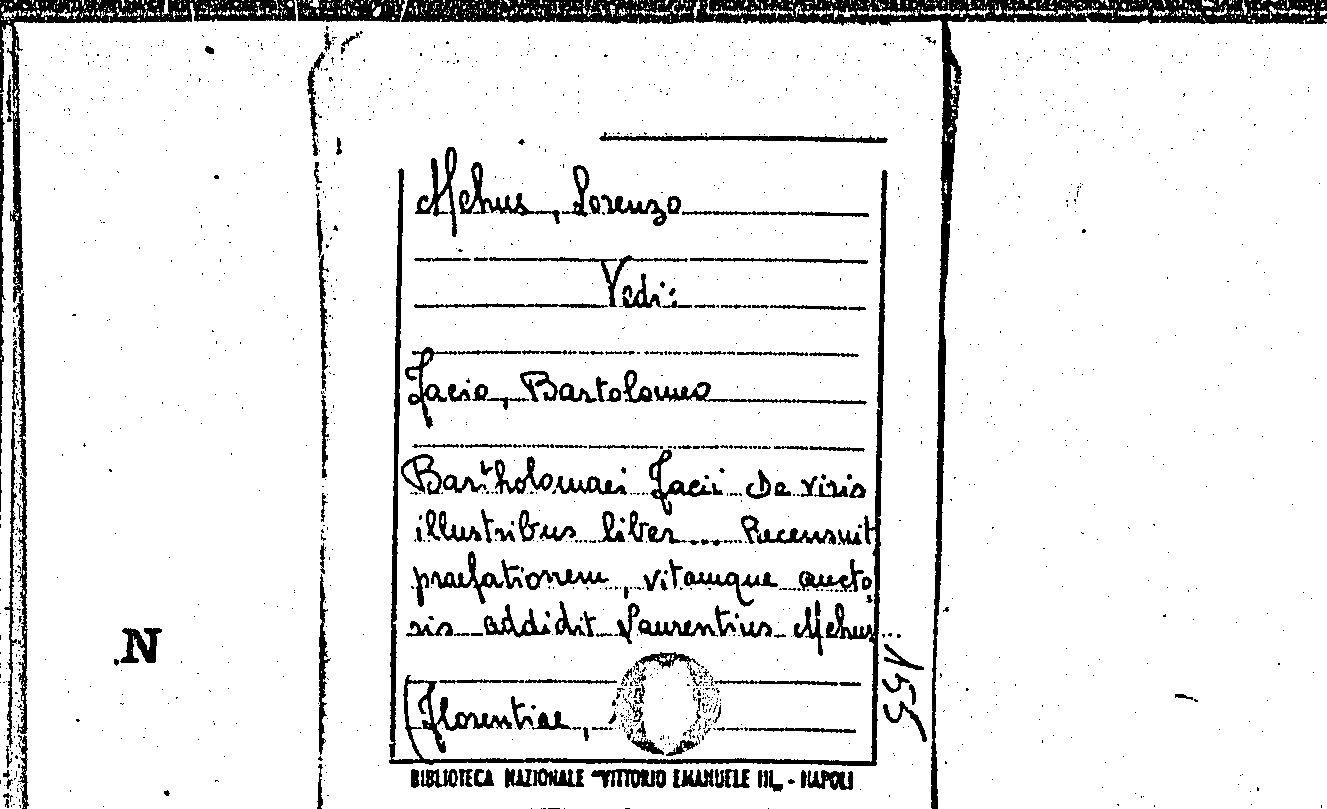 Mehus, Lorenzo
Vedi:
Facio, Bartolomeo
Bartholomaei Facii De viris
illustribus liber... Recensuit
praefationem, vitamque aucto
ris addidit Laurentius Mehus...
(Florentiae,
155
.N
BIBLIOTECA NAZIONALE "VITTORIO EMANUELE III„ - NAPOLI